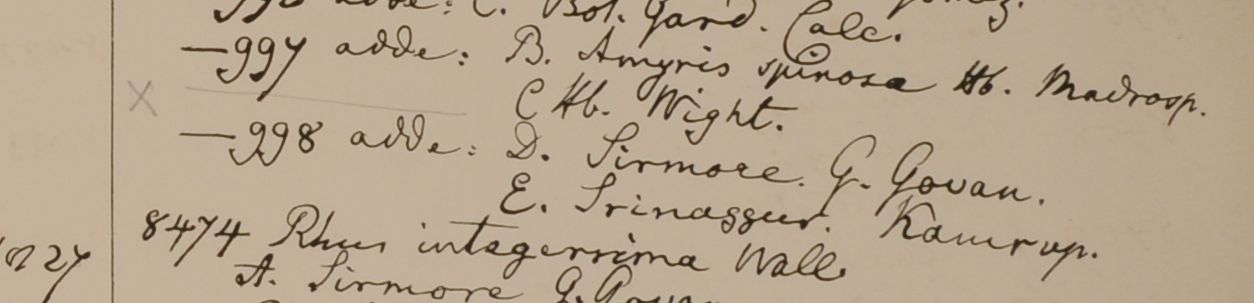 adde: C. Bot. Gard. Calc.
—997 adde: B. Amyris spinosa Hb. Madrasp.
X
C Hb. Wight.
—998 adde: D. Sirmore. G. Govan.
E. Srinaggur. Kamrup.
8474 Rhus integerrima Wall.
27
A. Sirmore G. Govan